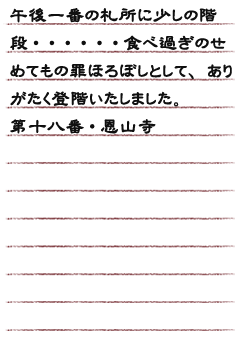 午後一番の札所に少しの階
段・・・・・・食べ過ぎのせ
めてもの罪ほろぼしとして、あり
がたく登階いたしました。
第十八番・恩山寺